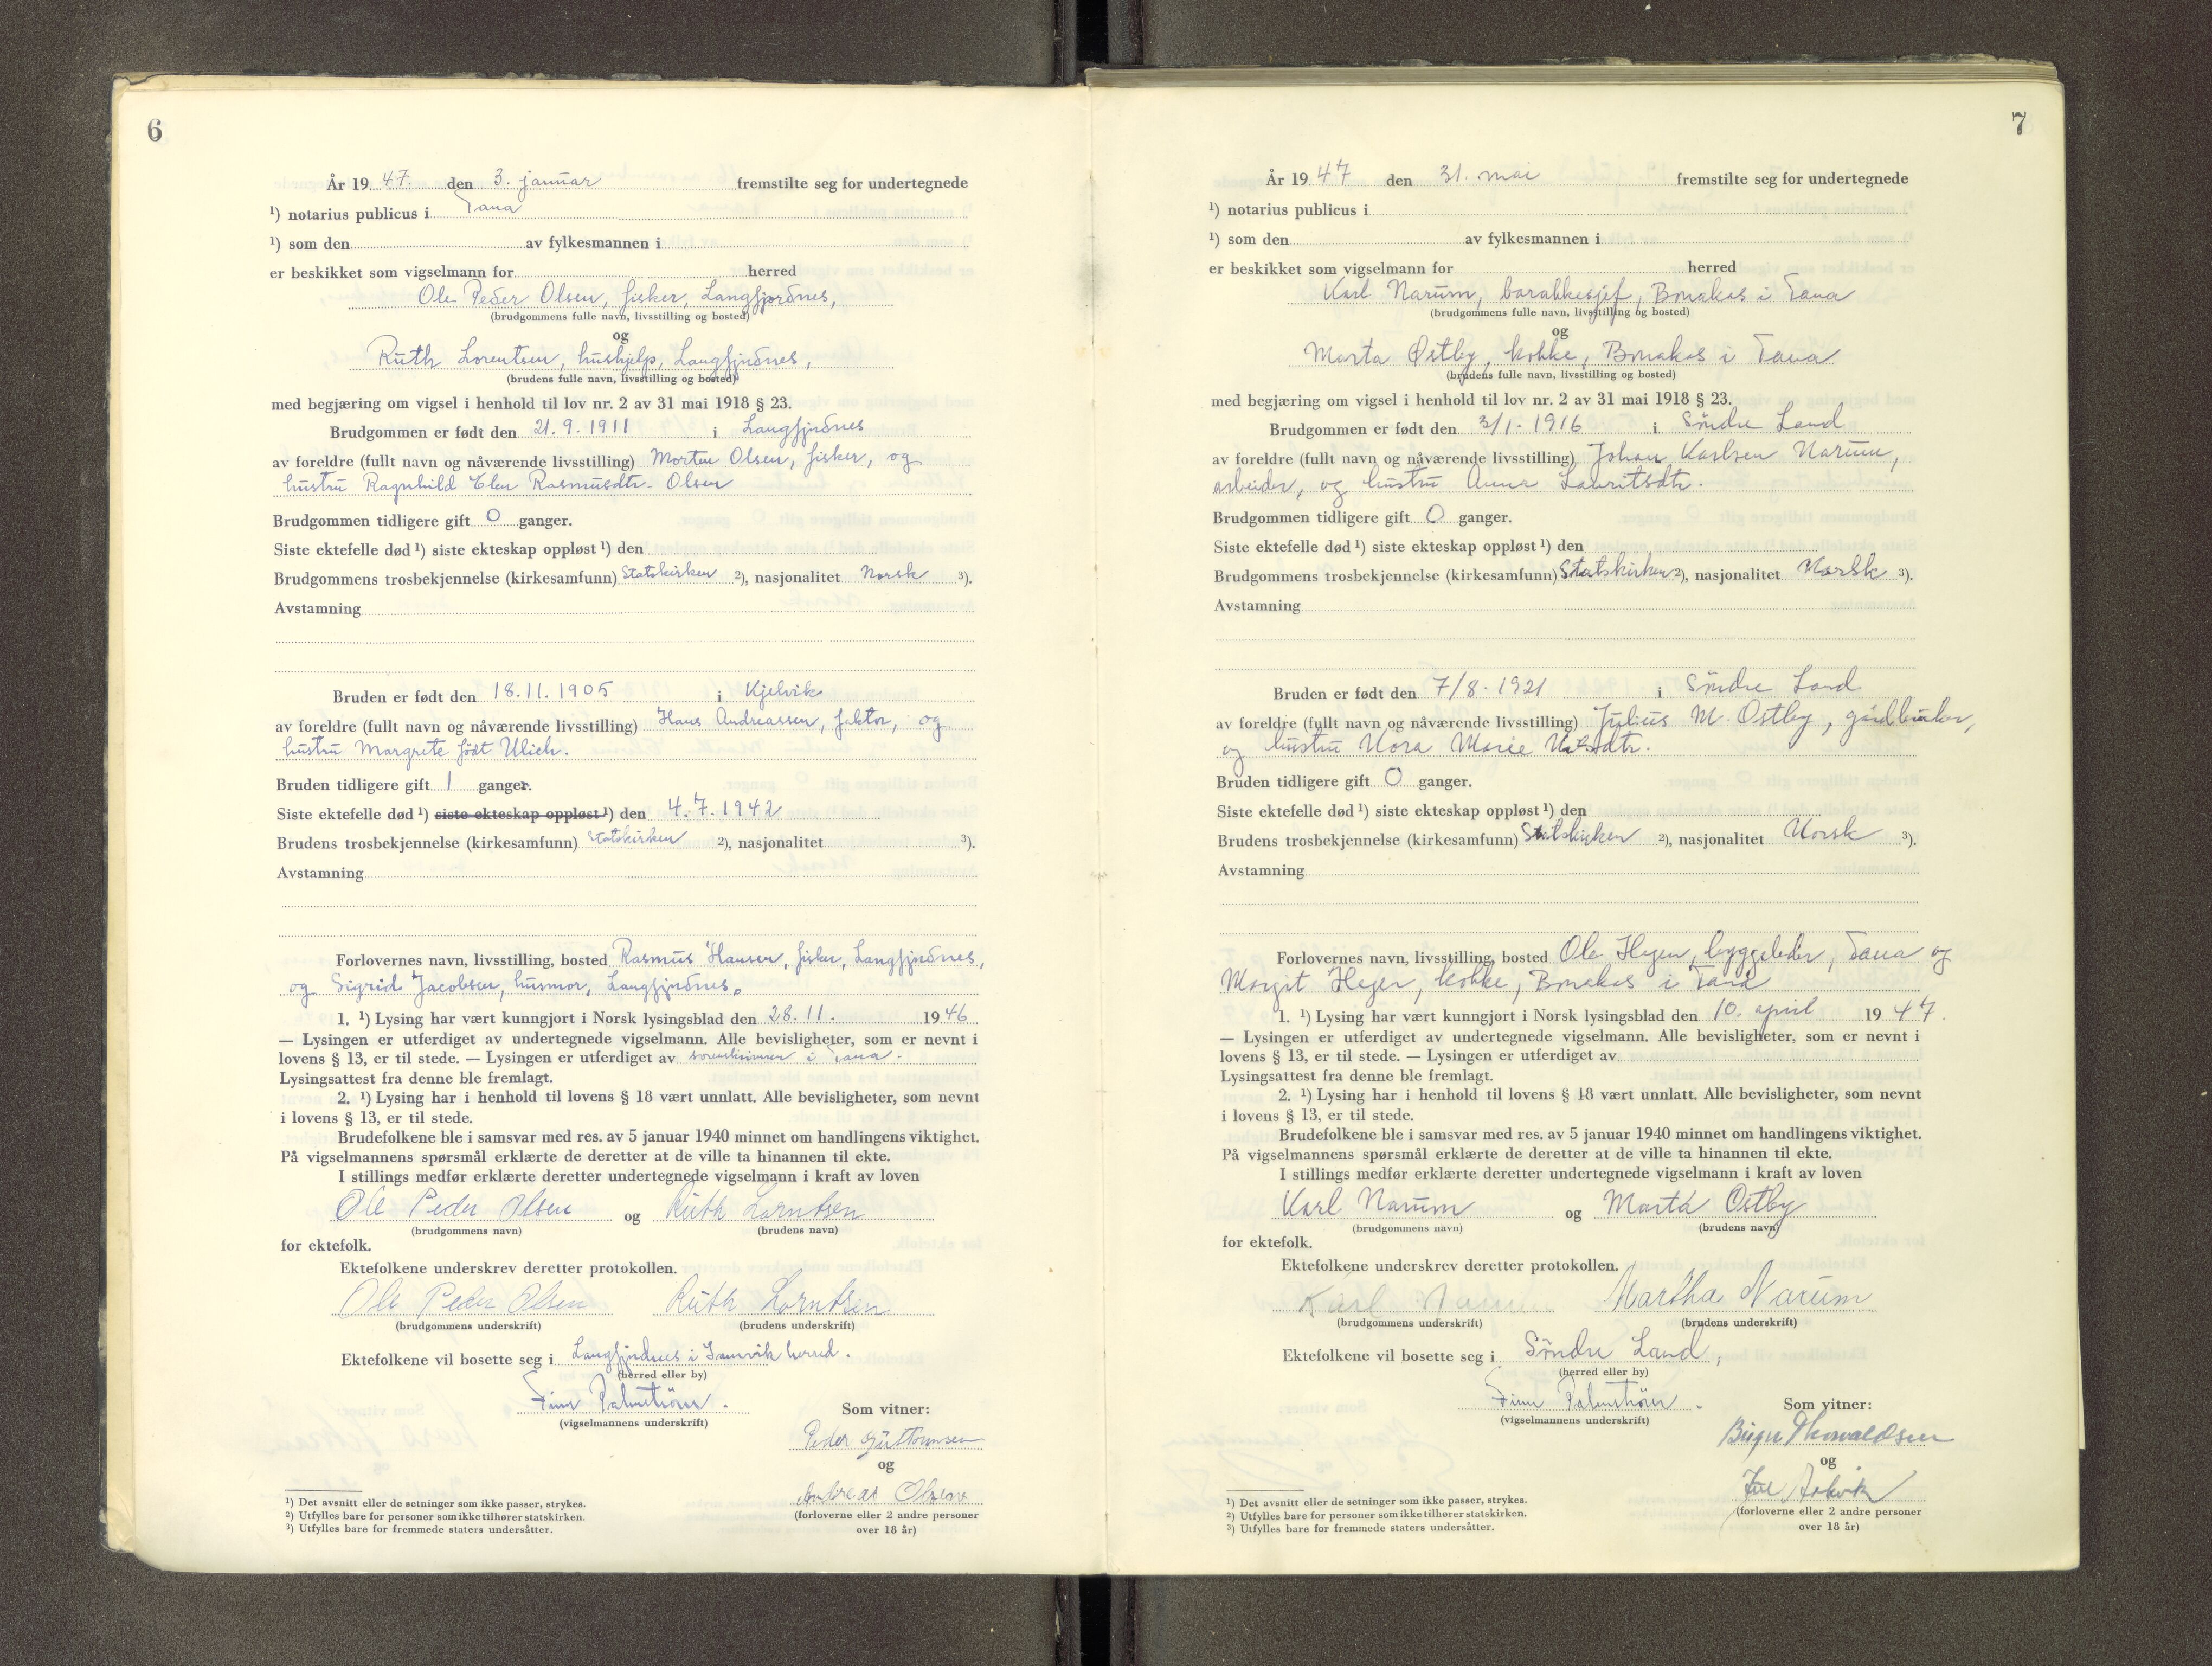 6
År 1947. den 3. januar fremstilte seg for undertegnede
¹) notarius publicus i Tana
¹) som den av fylkesmannen i
er beskikket som vigselmann for herred
Ole Peder Olsen, fisker, Langfjordnes,
(brudgommens fulle navn, livsstilling og bosted)
og
Ruth Lorentsen, hushjelp, Langfjordnes,
(brudens fulle navn, livsstilling og bosted)
med begjæring om vigsel i henhold til lov nr. 2 av 31 mai 1918 § 23.
Brudgommen er født den 21.9.1911 i Langfjordnes
av foreldre (fullt navn og nåværende livsstilling) Morten Olsen, fisker, og
hustru Ragnhild Elen Rasmusdtr. Olsen
Brudgommen tidligere gift 0 ganger.
Siste ektefelle død ¹) siste ekteskap oppløst ¹) den
Brudgommens trosbekjennelse (kirkesamfunn) Statskirken ²), nasjonalitet Norsk ³).
Avstamning
Bruden er født den 18.11.1905 i Kjelvik
av foreldre (fullt navn og nåværende livsstilling) Hans Andreassen, faktor, og
hustru Margrete født Ulich.
Bruden tidligere gift 1 ganger.
Siste ektefelle død ¹) siste ekteskap oppløst ¹) den 4.7.1942
Brudens trosbekjennelse (kirkesamfunn) Statskirken ²), nasjonalitet ³).
Avstamning
Forlovernes navn, livsstilling, bosted Rasmus Hansen, fisker, Langfjordnes,
og Sigrid Jacobsen, husmor, Langfjordnes.
1. ¹) Lysing har vært kunngjort i Norsk lysingsblad den 28.11. 1946
— Lysingen er utferdiget av undertegnede vigselmann. Alle bevisligheter, som er nevnt i
lovens § 13, er til stede. — Lysingen er utferdiget av sorenskriveren i Tana.
Lysingsattest fra denne ble fremlagt.
2. ¹) Lysing har i henhold til lovens § 18 vært unnlatt. Alle bevisligheter, som nevnt
i lovens § 13, er til stede.
Brudefolkene ble i samsvar med res. av 5 januar 1940 minnet om handlingens viktighet.
På vigselmannens spørsmål erklærte de deretter at de ville ta hinannen til ekte.
I stillings medfør erklærte deretter undertegnede vigselmann i kraft av loven
Ole Peder Olsen og Ruth Lorntsen
(brudgommens navn) (brudens navn)
for ektefolk.
Ektefolkene underskrev deretter protokollen.
Ole Peder Olsen Ruth Lorntsen
(brudgommens underskrift) (brudens underskrift)
Ektefolkene vil bosette seg i Langfjordnes i herred.
(herred eller by)
Finn Palmstrøm.
(vigselmannens underskrift)
Som vitner:
Peder Guttormsen
og
Andreas Olsen
(forloverne eller 2 andre personer
over 18 år)
¹) Det avsnitt eller de setninger som ikke passer, strykes.
²) Utfylles bare for personer som ikke tilhører statskirken.
³) Utfylles bare for fremmede staters undersåtter.
7
År 1947 den 31. mai fremstilte seg for undertegnede
¹) notarius publicus i
¹) som den av fylkesmannen i
er beskikket som vigselmann for herred
Karl Narum, barakkesjef, Bonakas i Tana
(brudgommens fulle navn, livsstilling og bosted)
og
Marta Østby, kokke, Bonakas i Tana
(brudens fulle navn, livsstilling og bosted)
med begjæring om vigsel i henhold til lov nr. 2 av 31 mai 1918 § 23.
Brudgommen er født den 3/1-1916 i Söndre Land
av foreldre (fullt navn og nåværende livsstilling) Johan Karlsen Narum,
arbeider, og hustru Anna Lauritsdtr.
Brudgommen tidligere gift 0 ganger.
Siste ektefelle død ¹) siste ekteskap oppløst ¹) den
Brudgommens trosbekjennelse (kirkesamfunn) Statskirken ²), nasjonalitet Norsk ³).
Avstamning
Bruden er født den 7/8-1921 i Söndre Land
av foreldre (fullt navn og nåværende livsstilling) Julius M. Østby, gårdbruker,
og hustru Nora Marie
Bruden tidligere gift 0 ganger.
Siste ektefelle død ¹) siste ekteskap oppløst ¹) den
Brudens trosbekjennelse (kirkesamfunn) Statskirken ²), nasjonalitet Norsk ³).
Avstamning
Forlovernes navn, livsstilling, bosted Ole Hejer, byggeleder, Tana og
Margit Hejer, kokke, Bonakas i Tana
1. ¹) Lysing har vært kunngjort i Norsk lysingsblad den 10. april 1947.
— Lysingen er utferdiget av undertegnede vigselmann. Alle bevisligheter, som er nevnt i
lovens § 13, er til stede. — Lysingen er utferdiget av
Lysingsattest fra denne ble fremlagt.
2. ¹) Lysing har i henhold til lovens § 18 vært unnlatt. Alle bevisligheter, som nevnt
i lovens § 13, er til stede.
Brudefolkene ble i samsvar med res. av 5 januar 1940 minnet om handlingens viktighet.
På vigselmannens spørsmål erklærte de deretter at de ville ta hinannen til ekte.
I stillings medfør erklærte deretter undertegnede vigselmann i kraft av loven
Karl Narum og Marta Østby
(brudgommens navn) (brudens navn)
for ektefolk.
Ektefolkene underskrev deretter protokollen.
Karl Narum Martha Narum
(brudgommens underskrift) (brudens underskrift)
Ektefolkene vil bosette seg i Söndre Land,
(herred eller by)
Finn Palmstrøm.
(vigselmannens underskrift)
Som vitner:
Birger Thorvaldsen
og
(forloverne eller 2 andre personer
over 18 år)
¹) Det avsnitt eller de setninger som ikke passer, strykes.
²) Utfylles bare for personer som ikke tilhører statskirken.
³) Utfylles bare for fremmede staters undersåtter.